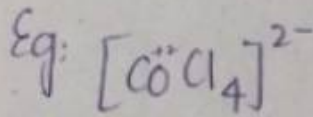 Eg: [Co⁺⁺Cl₄]²⁻